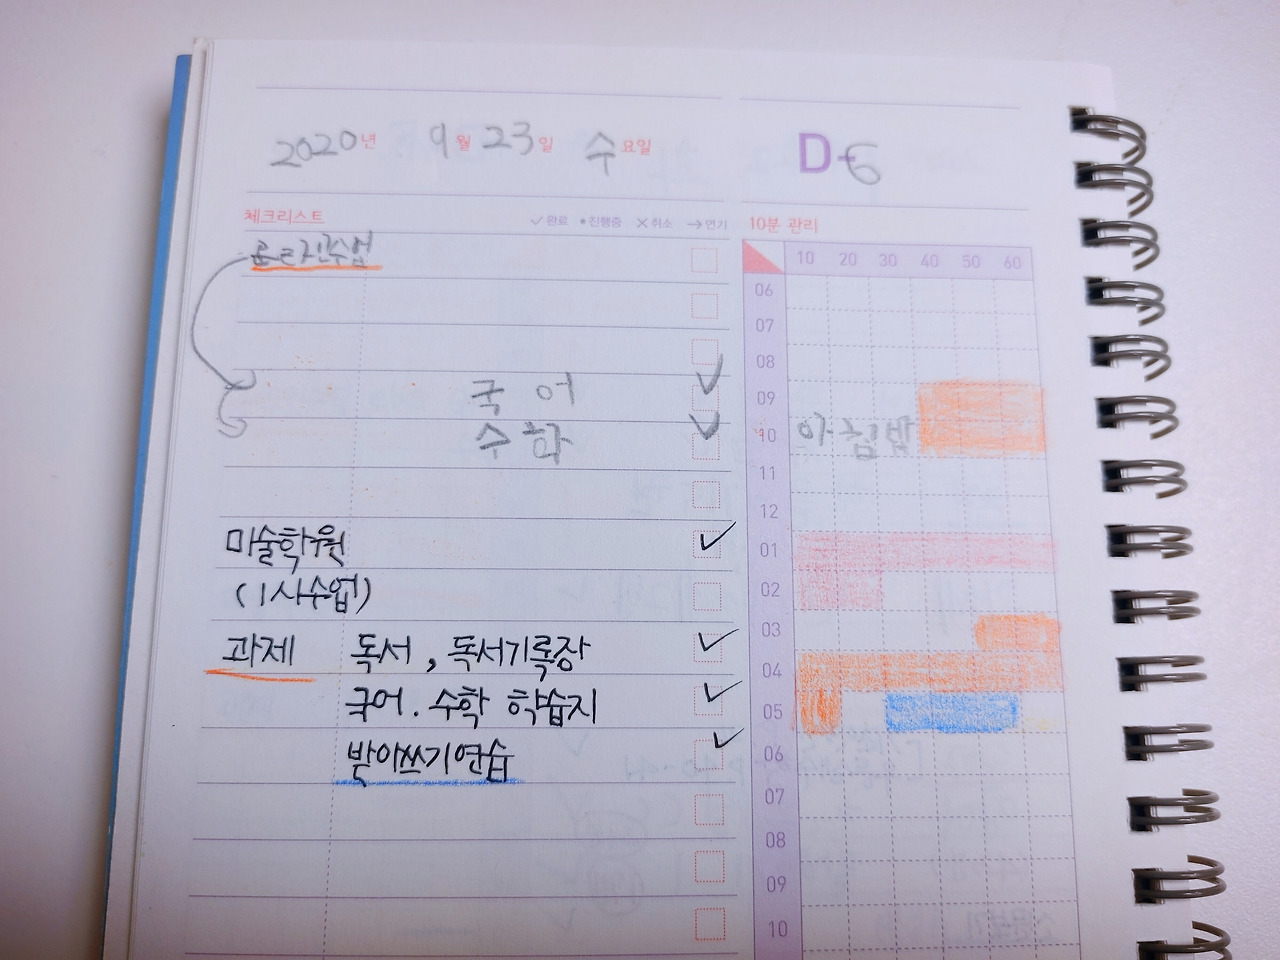 2020년 9월 23일 수요일 D-6
체크리스트 ✓완료 •진행중 ✕취소 →연기 10분 관리
온라인수업
10 20 30 40 50 60
06
07
08
국어 ✓ 09
수학 ✓ 10 아침밥
11
12
미술학원 ✓ 01
(1시수업) 02
과제 독서, 독서기록장 ✓ 03
04
국어. 수학 학습지 ✓ 05
받아쓰기연습 ✓ 06
07
08
09
10